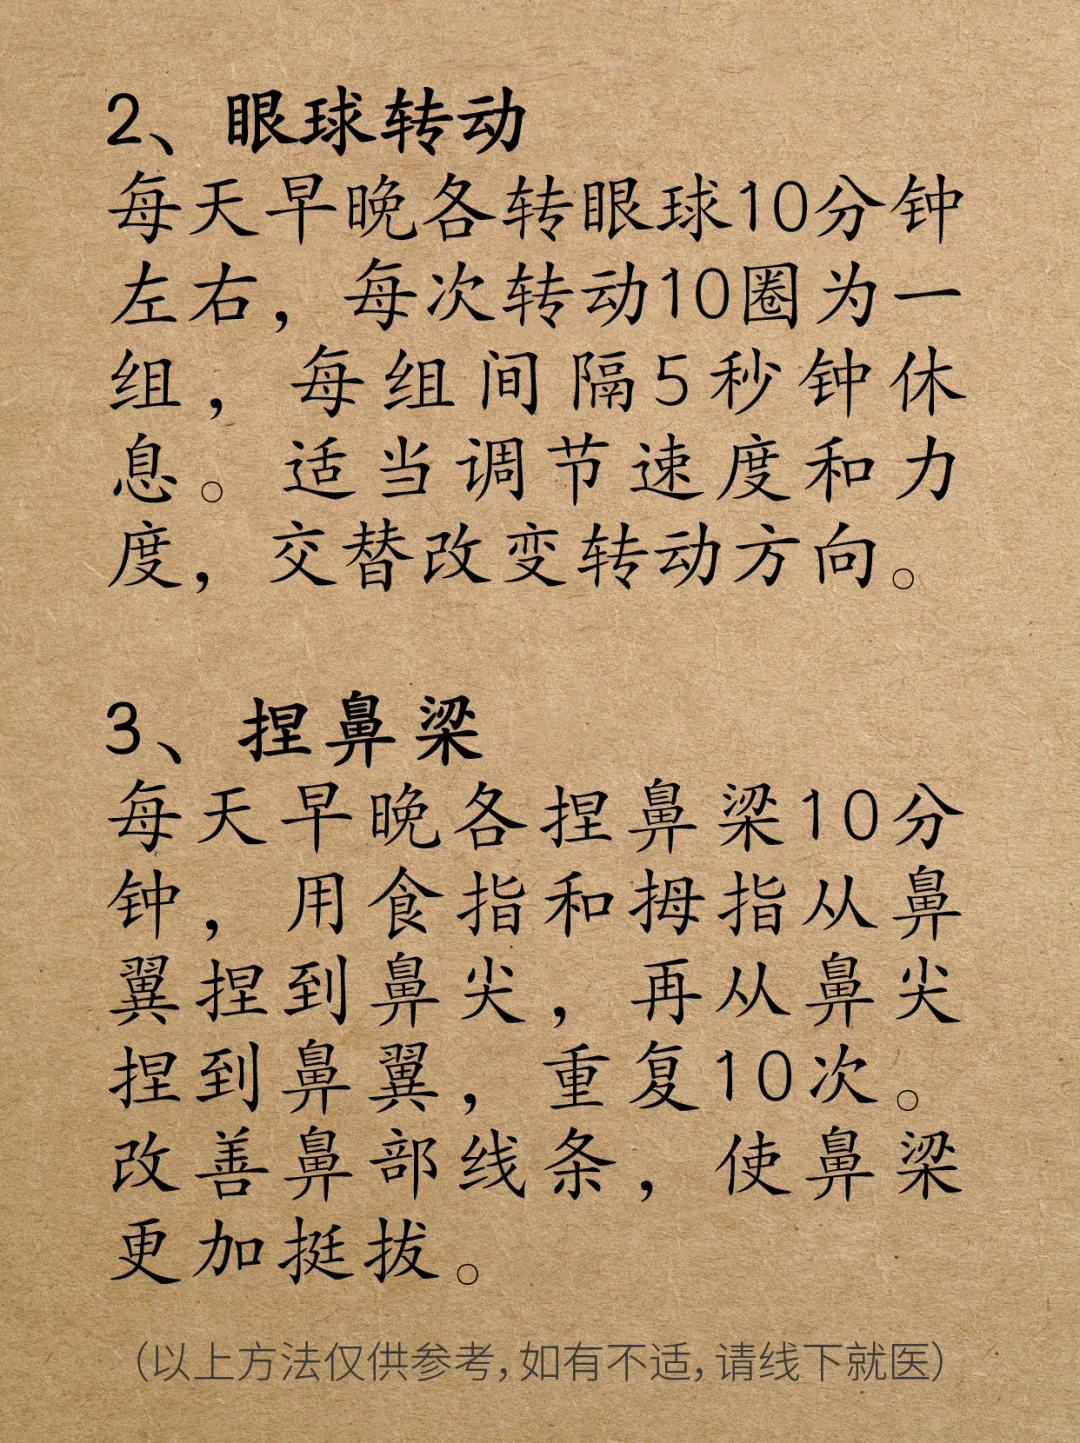 2、眼球转动
每天早晚各转眼球10分钟
左右，每次转动10圈为一
组，每组间隔5秒钟休
息。适当调节速度和力
度，交替改变转动方向。
3、捏鼻梁
每天早晚各捏鼻梁10分
钟，用食指和拇指从鼻
翼捏到鼻尖，再从鼻尖
捏到鼻翼，重复10次。
改善鼻部线条，使鼻梁
更加挺拔。
（以上方法仅供参考，如有不适，请线下就医）